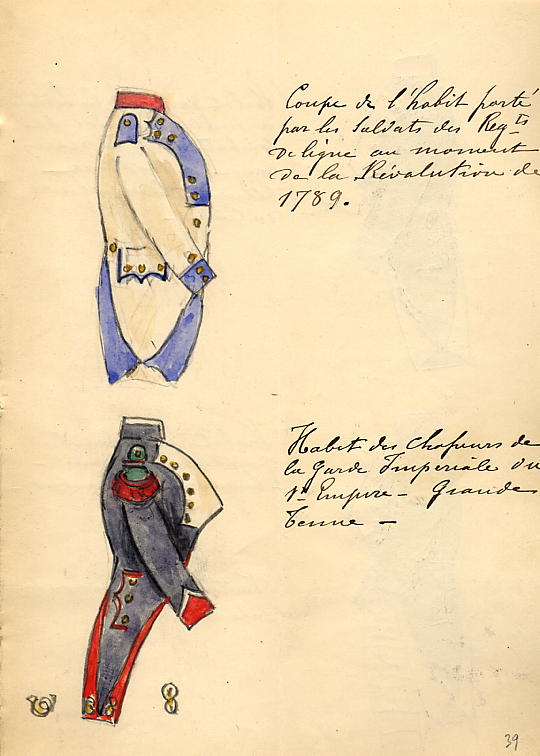 Coupe de l'habit porté
par les Soldats des Reg.ts
de ligne au moment
de la Révolution de
1789.
Habit des Chasseurs de
la garde Impériale du
1er Empire – Grande
tenue –
39